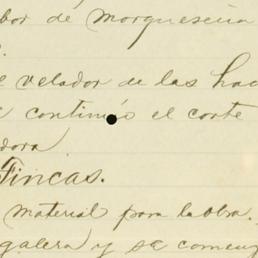 bor de morqueseua
e velador de las hac
e continúo el corte
dora
Fincas.
material para la obra.
galera y se comenz